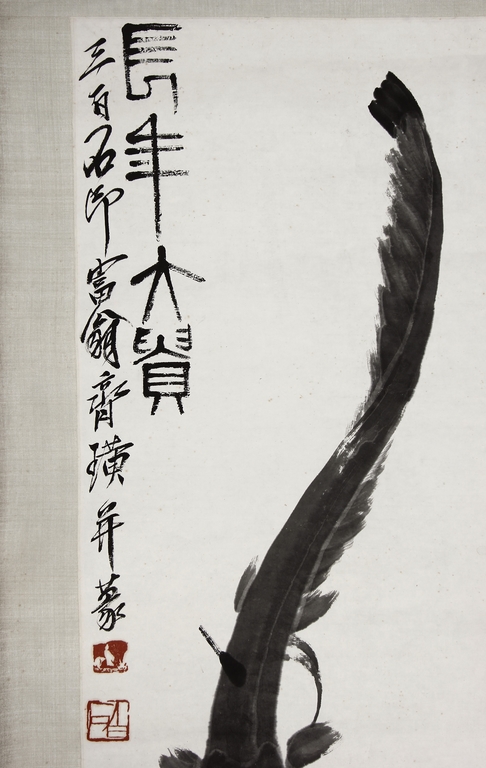 長年大貴
三百石印富翁齊璜并篆
白石